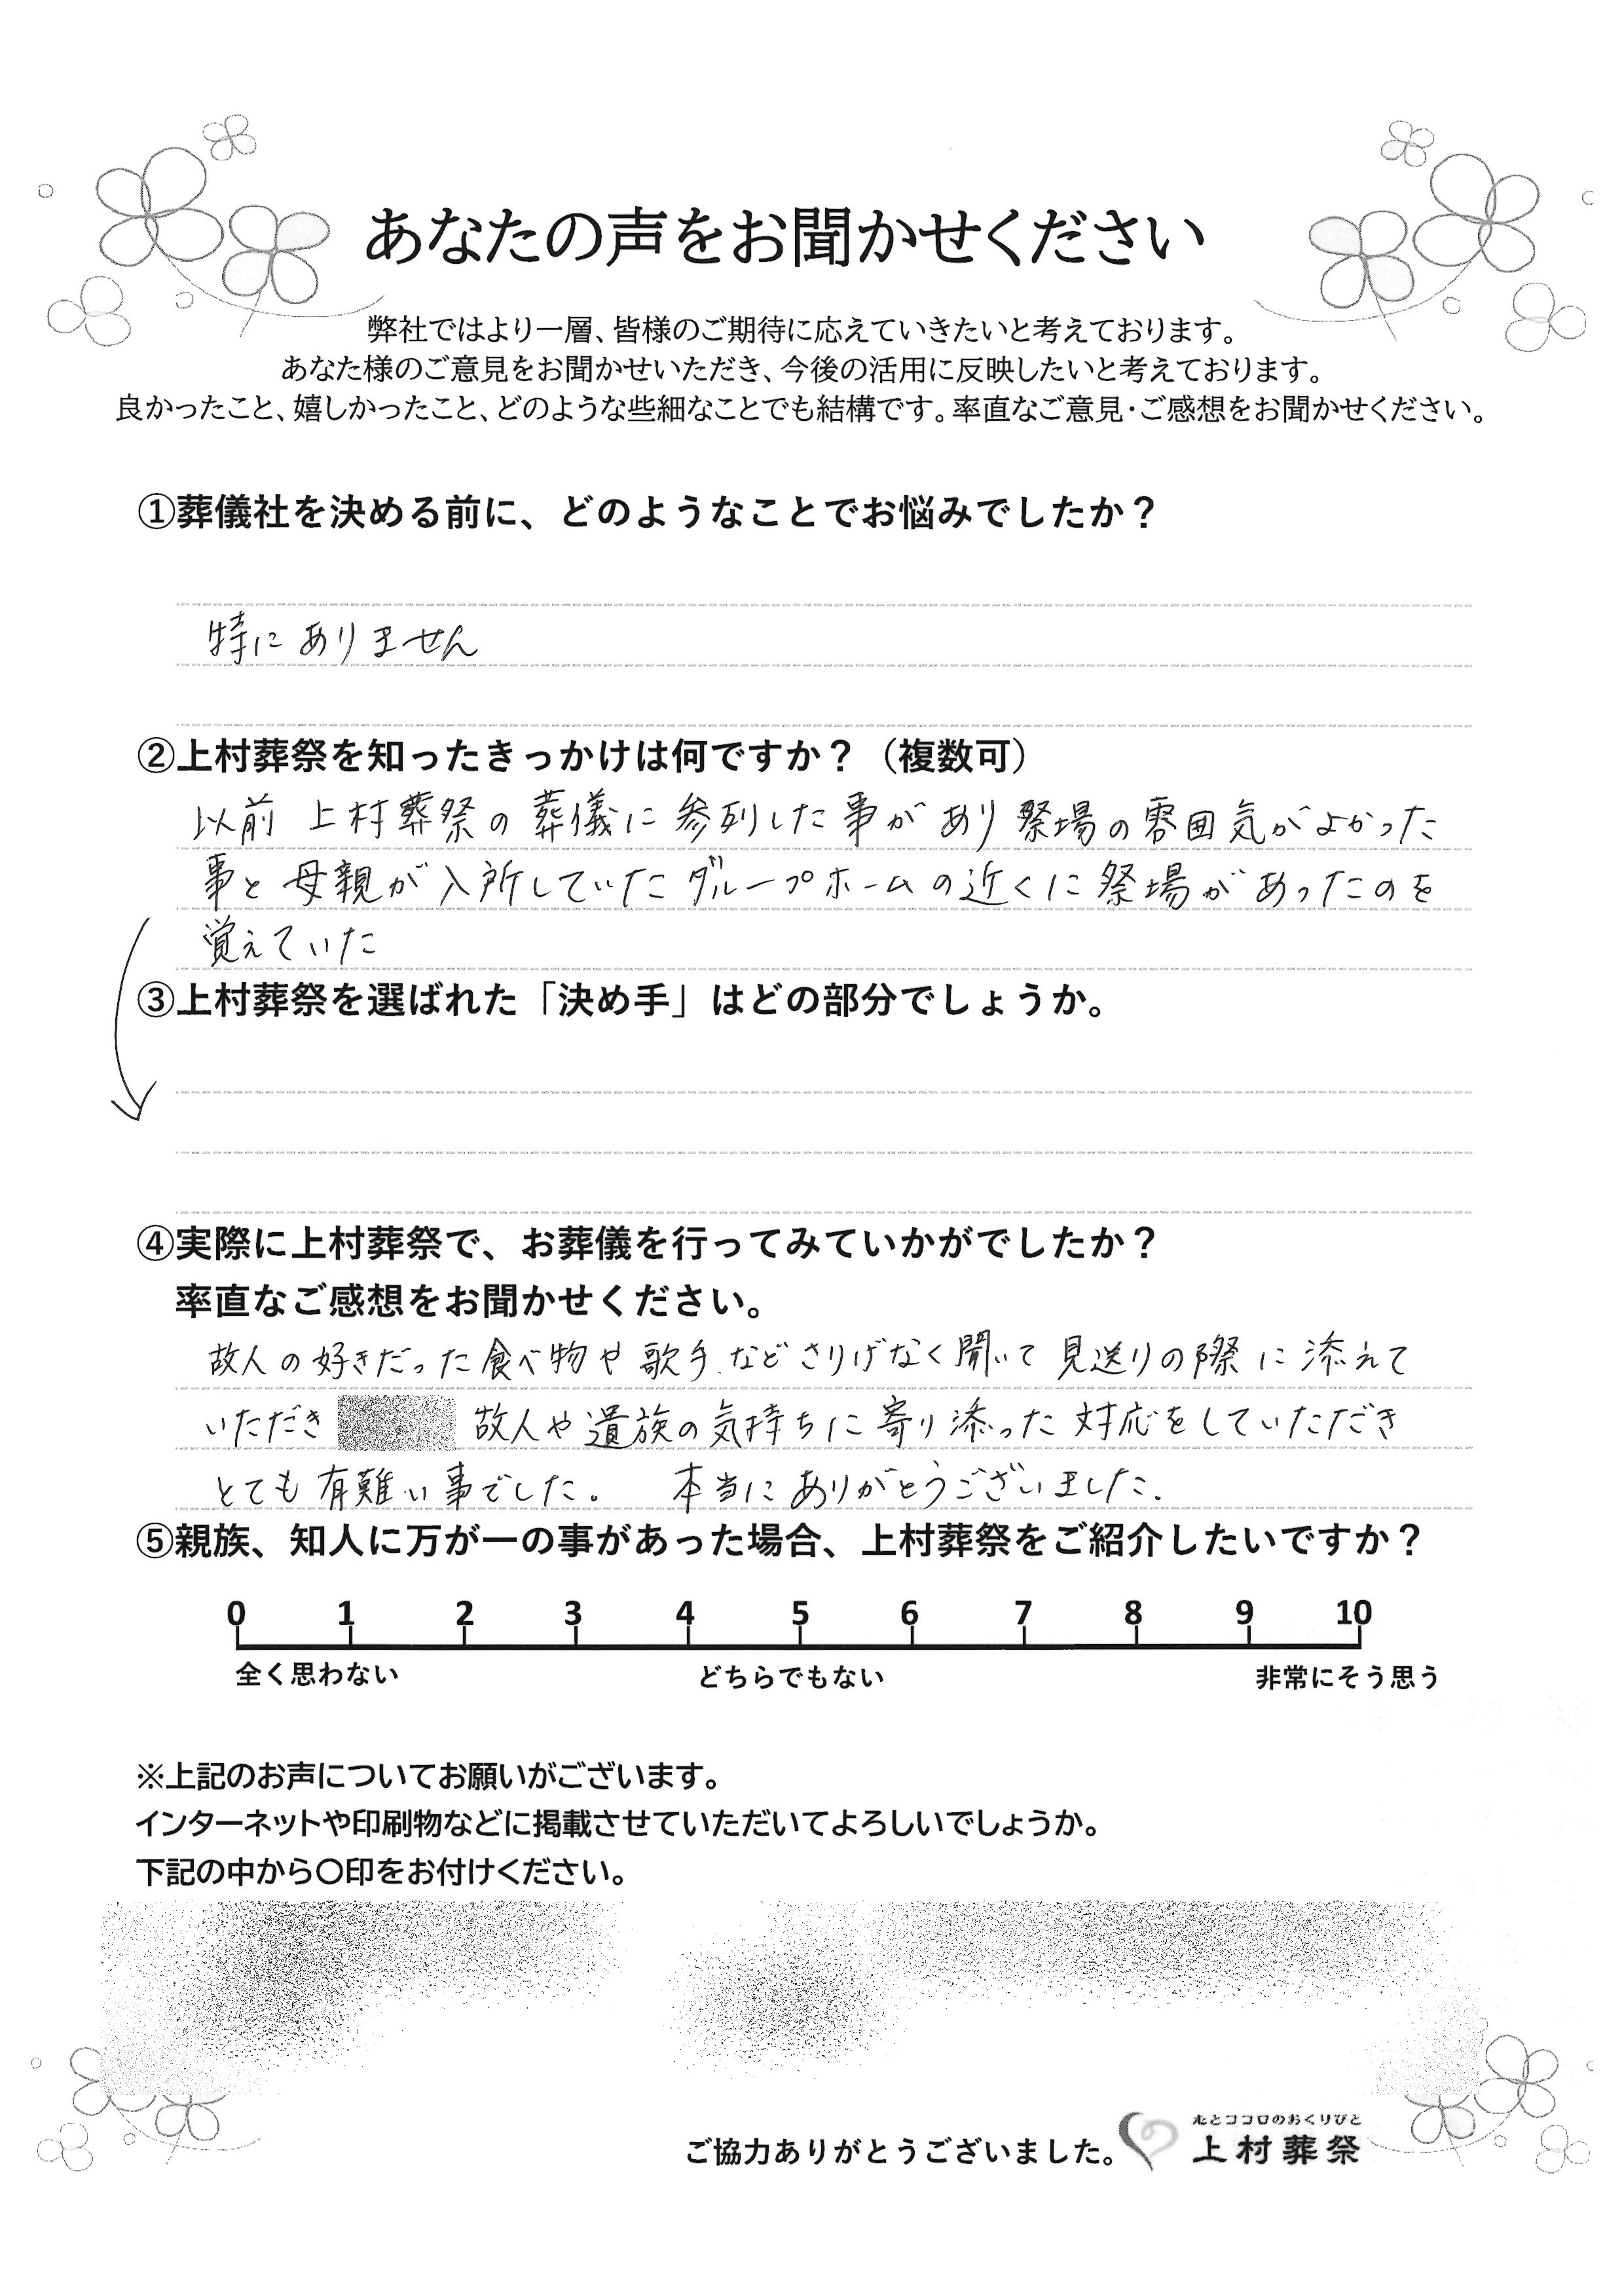 あなたの声をお聞かせください
弊社ではより一層、皆様のご期待に応えていきたいと考えております。
あなた様のご意見をお聞かせいただき、今後の活用に反映したいと考えております。
良かったこと、嬉しかったこと、どのような些細なことでも結構です。率直なご意見・ご感想をお聞かせください。
①葬儀社を決める前に、どのようなことでお悩みでしたか？
特にありません
②上村葬祭を知ったきっかけは何ですか？（複数可）
以前 上村葬祭の葬儀に参列した事があり祭場の雰囲気がよかった
事と母親が入所していたグループホームの近くに祭場があったのを
覚えていた
③上村葬祭を選ばれた「決め手」はどの部分でしょうか。
④実際に上村葬祭で、お葬儀を行ってみていかがでしたか？
率直なご感想をお聞かせください。
故人の好きだった食べ物や歌手などさりげなく聞いて見送りの際に添えて
いただき 故人や遺族の気持ちに寄り添った対応をしていただき
とても有難い事でした。 本当にありがとうございました.
⑤親族、知人に万が一の事があった場合、上村葬祭をご紹介したいですか？
0 1 2 3 4 5 6 7 8 9 10
全く思わない どちらでもない 非常にそう思う
※上記のお声についてお願いがございます。
インターネットや印刷物などに掲載させていただいてよろしいでしょうか。
下記の中から〇印をお付けください。
心とココロのおくりびと
ご協力ありがとうございました。 上村葬祭